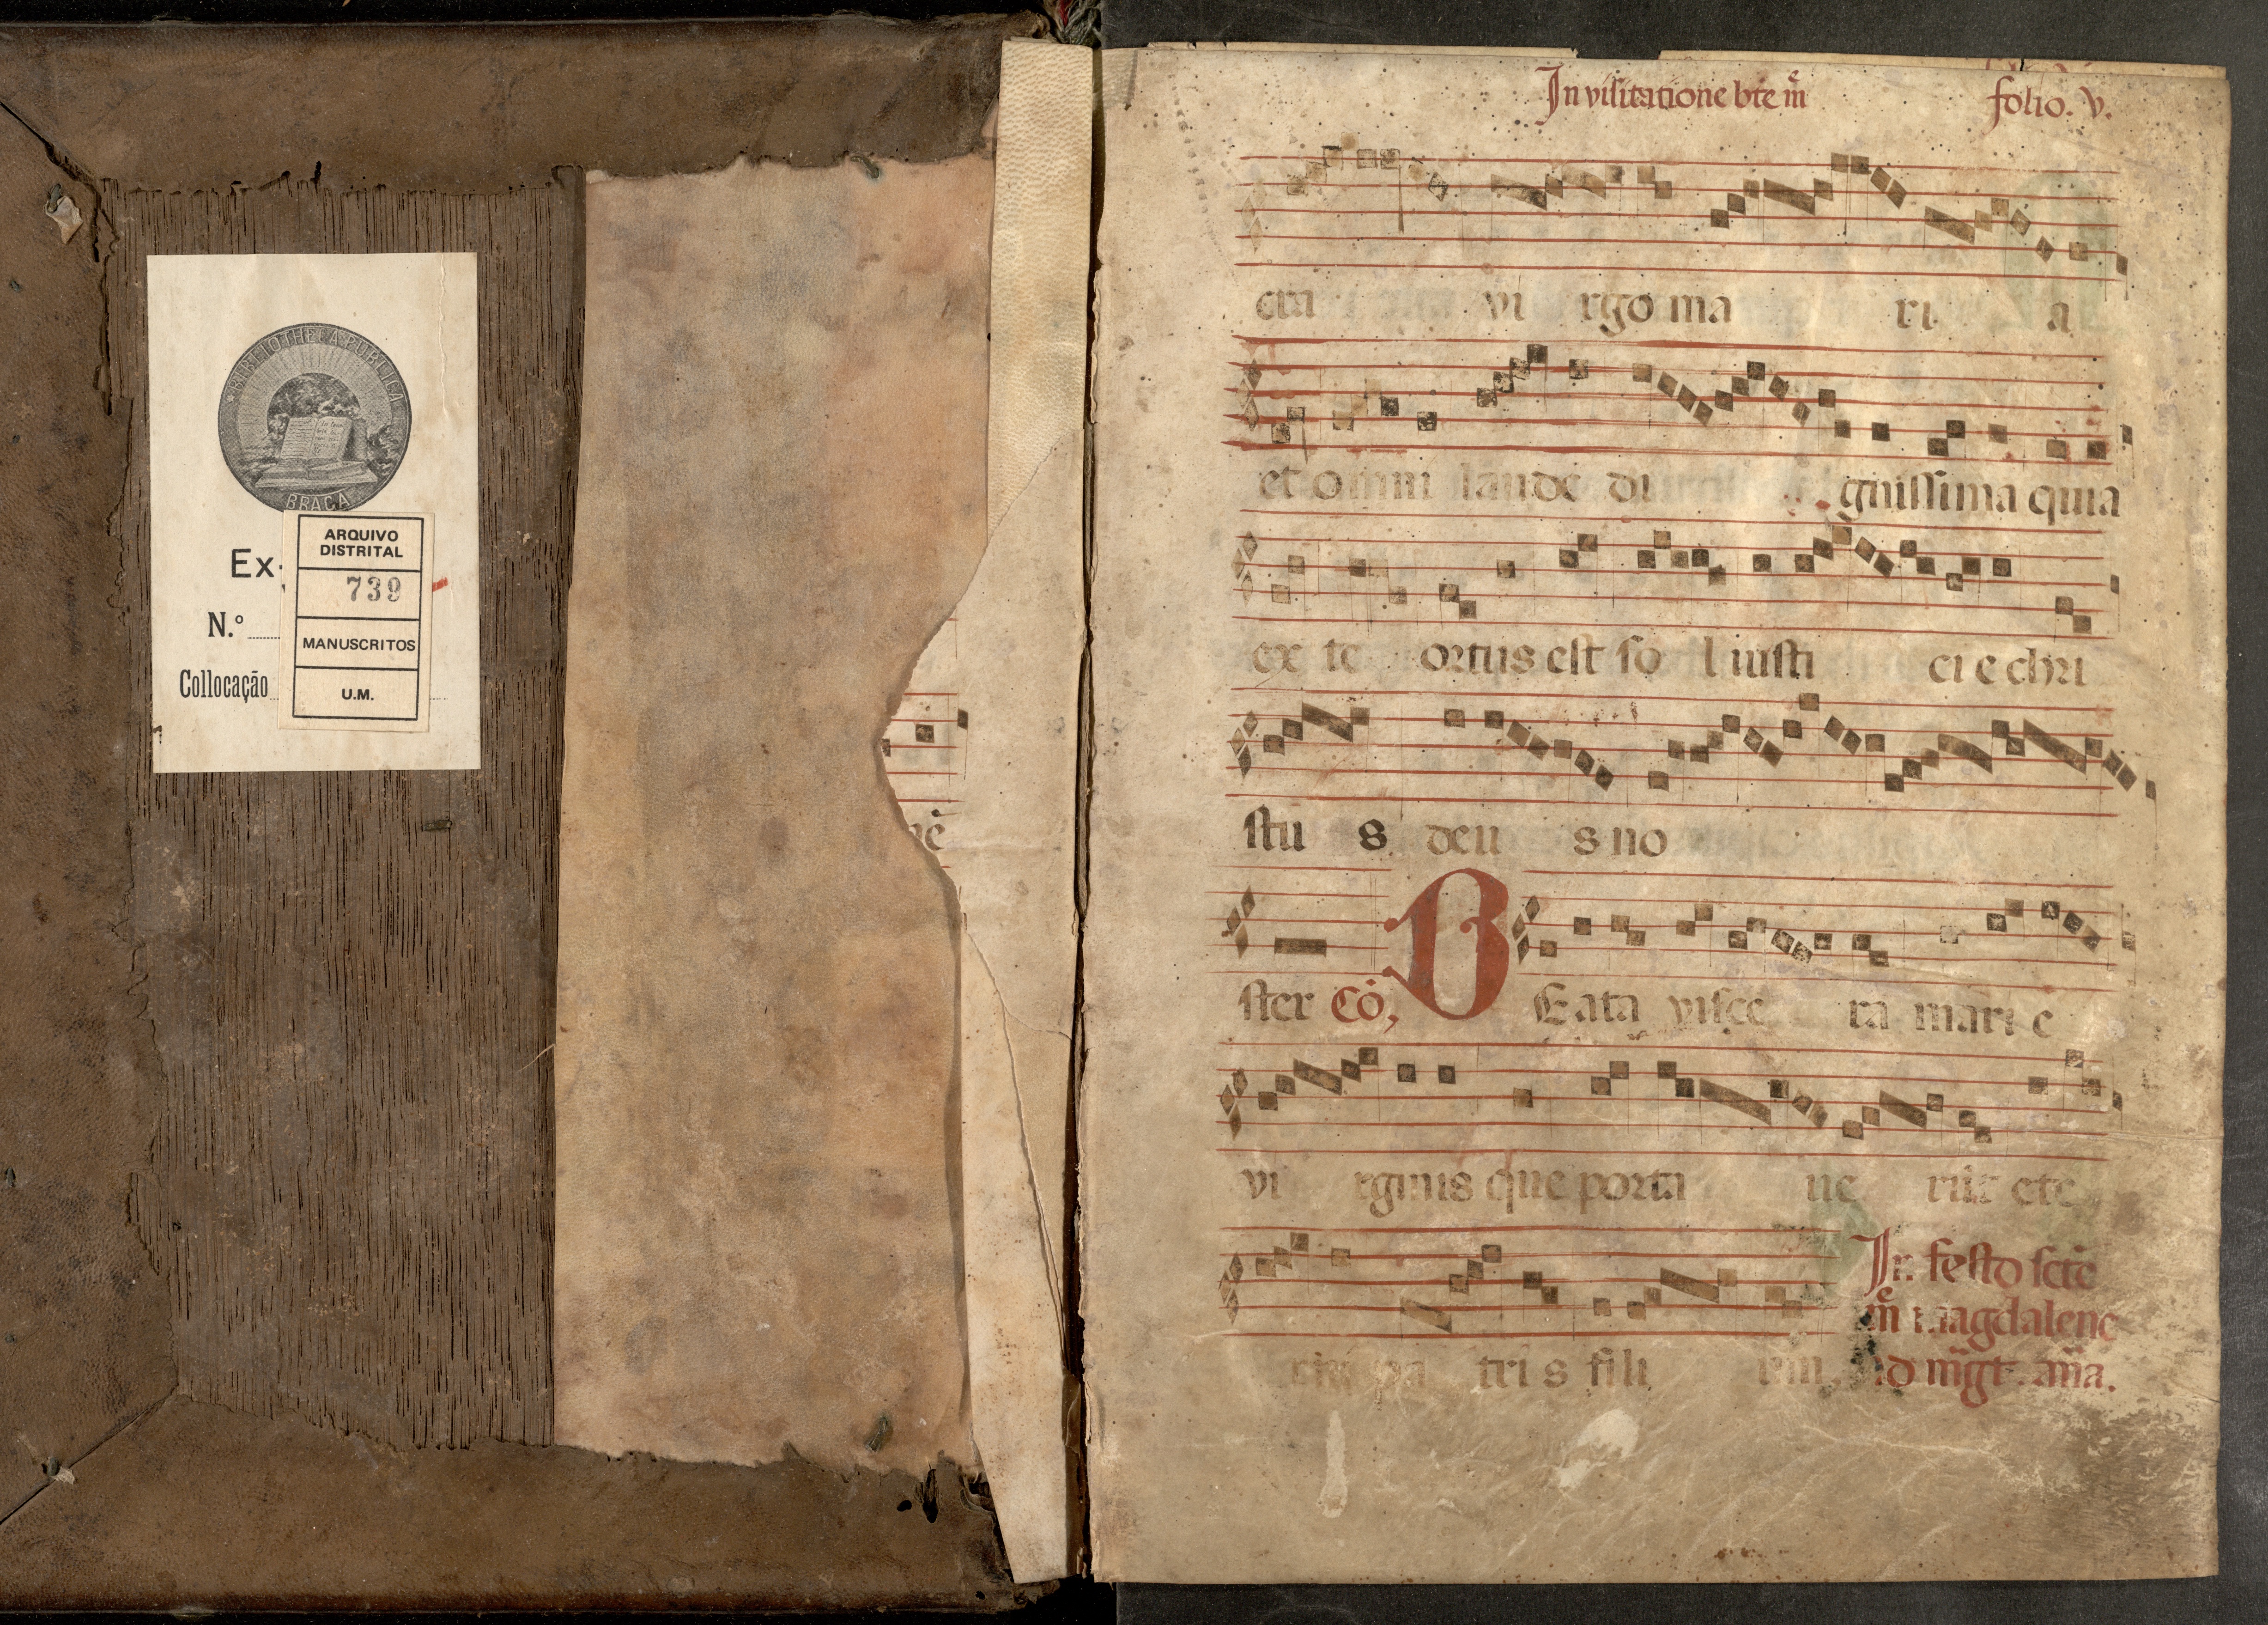 BIBLIOTHECA PUBLICA
BRAGA
Ex.
N.º
Collocação
ARQUIVO
DISTRITAL
739
MANUSCRITOS
U.M.
In visitatione bte m̃
folio. v.
cra vi rgo ma ri a
et omni laude di gnissima quia
ex te ortus est so l iusti ci e chri
stu s deu s no
ster Cō,
BEata visce ra mari e
vi rginis que porta ue rūt ete
pa tri s fili um.
In festo scte
m̃ magdalene